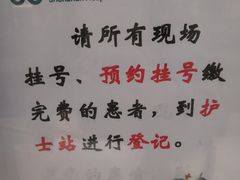 请所有现场
挂号、预约挂号缴
完费的患者，到护
士站进行登记。